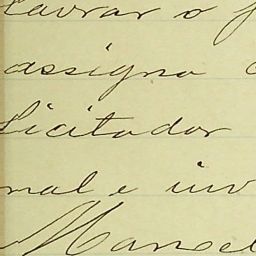 lavrar o p
assigno
licitador
nal e inv
Manoel